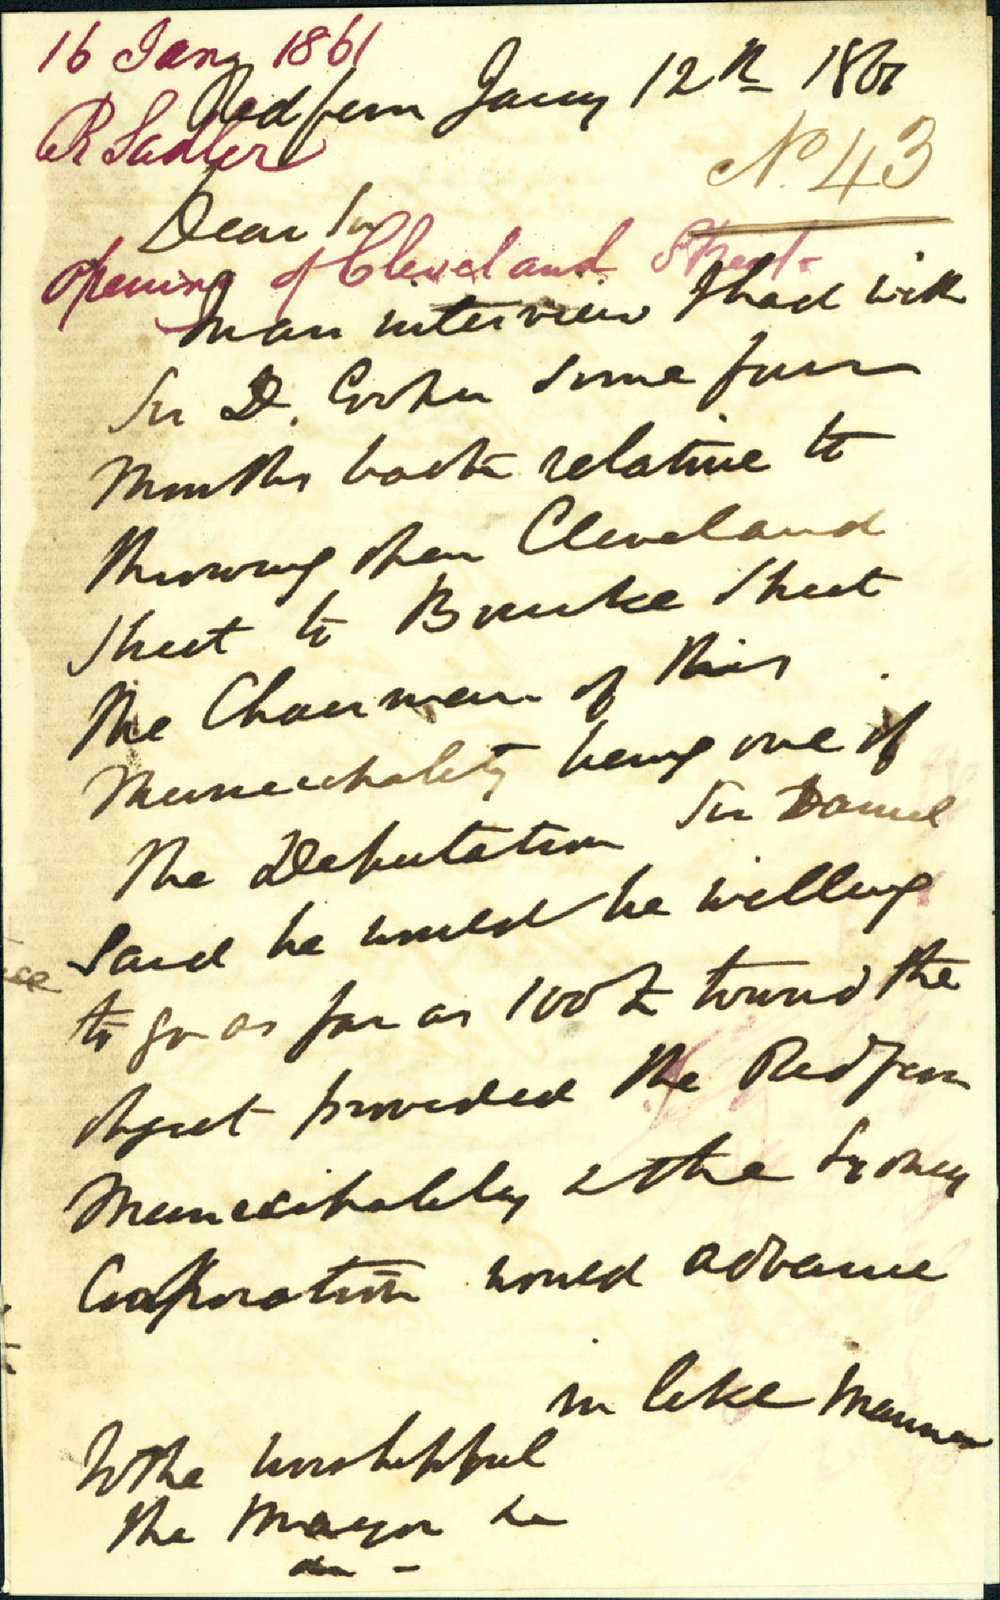 16 Jany 1861
Redfern Jany 12th 1861
R Sadler
No. 43
Dear Sir
Opening of Cleveland Street
In an interview I had with
Sir D. Cooper some four
Months back relative to
throwing open Cleveland
Street to Bourke Street
the Chairman of this
Municipality being one of
the Deputation Sir Daniel
Said he would be willing
to go as far as 100£ toward the
object provided the Redfern
Municipality & the Sydney
Corporation would advance
in like Manner
To the Worshipful
the Mayor &c
&c -